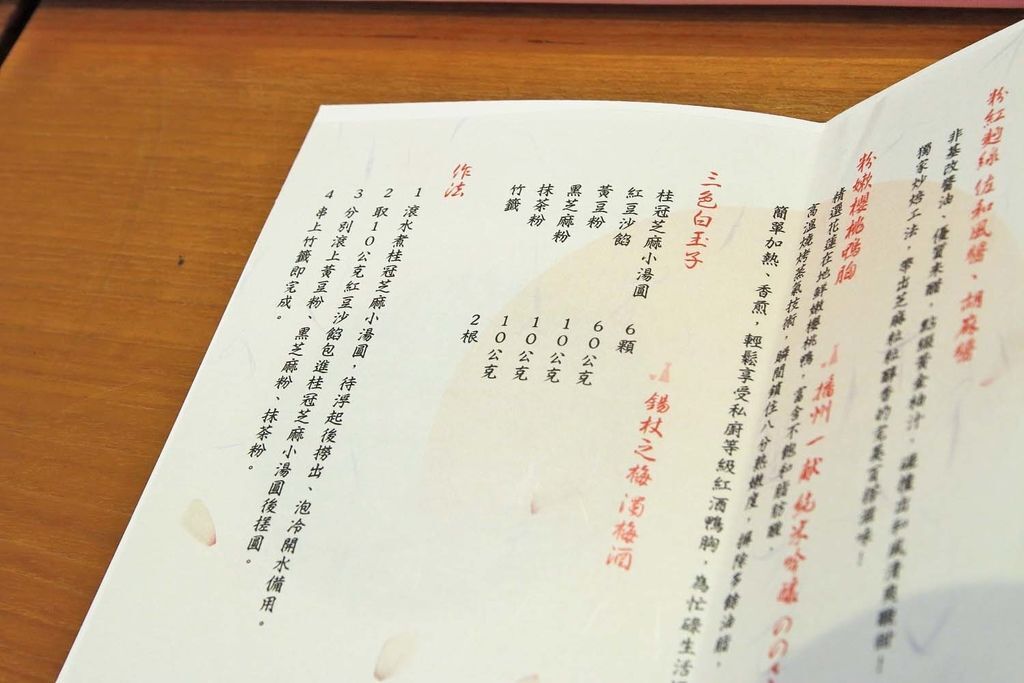 粉紅麴絲佐和風醬、胡麻醬
非基改醬油、優質米醋，點綴黃金柚汁，
獨家炒焙工法，帶出芝麻粒粒醇香的
粉嫩櫻桃鴨胸
播州一献純米吟釀
精選花蓮在地鮮嫩櫻桃鴨，富含不飽和脂肪酸，
高溫燒烤蒸氣技術，瞬間鎖住八分熟嫩度，摒除多餘油脂，
簡單加熱、香煎，輕鬆享受私廚等級紅酒鴨胸，為忙碌生活
三色白玉子
錫杖之梅 濁梅酒
桂冠芝麻小湯圓 6顆
紅豆沙餡 60公克
黃豆粉 10公克
黑芝麻粉 10公克
抹茶粉 10公克
竹籤 2根
作法
1 滾水煮桂冠芝麻小湯圓，待浮起後撈出、泡冷開水備用。
2 取10公克紅豆沙餡包進桂冠芝麻小湯圓後搓圓。
3 分別滾上黃豆粉、黑芝麻粉、抹茶粉。
4 串上竹籤即完成。